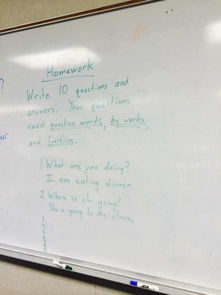 Homework
Write 10 questions and
answers. Your questions
need question words, be verbs,
and
1. What are you doing?
I am eating dinner.
2. Where is she going?
She is going to the store.